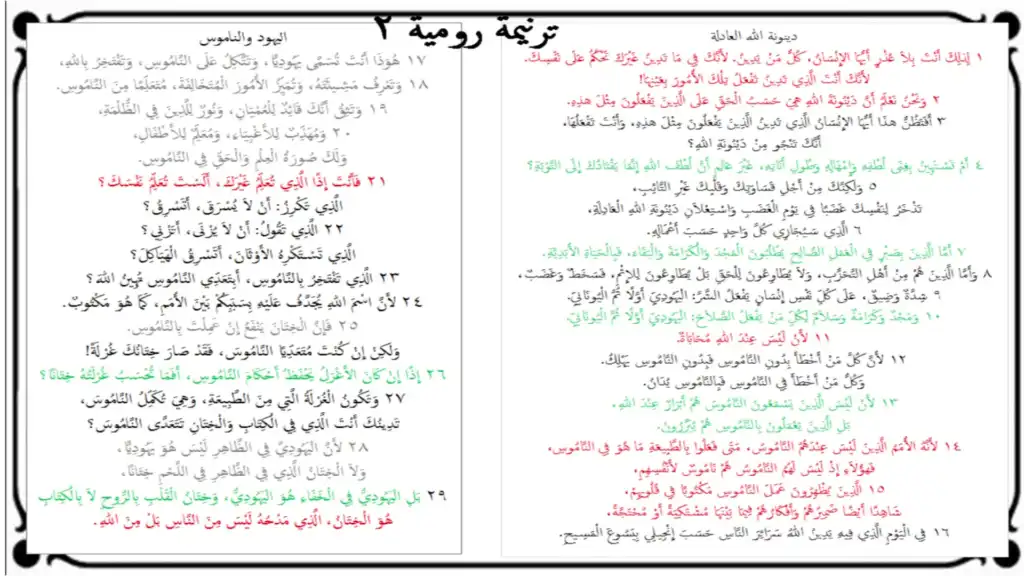 ترنيمة رومية ٢
دينونة الله العادلة
١ لِذلِكَ أَنْتَ بِلاَ عُذْرٍ أَيُّهَا الإِنْسَانُ، كُلُّ مَنْ يَدِينُ. لأَنَّكَ فِي مَا تَدِينُ غَيْرَكَ تَحْكُمُ عَلَى نَفْسِكَ.
لأَنَّكَ أَنْتَ الَّذِي تَدِينُ تَفْعَلُ تِلْكَ الأُمُورَ بِعَيْنِهَا!
٢ وَنَحْنُ نَعْلَمُ أَنَّ دَيْنُونَةَ اللهِ هِيَ حَسَبُ الْحَقِّ عَلَى الَّذِينَ يَفْعَلُونَ مِثْلَ هذِهِ.
٣ أَفَتَظُنُّ هذَا أَيُّهَا الإِنْسَانُ الَّذِي تَدِينُ الَّذِينَ يَفْعَلُونَ مِثْلَ هذِهِ، وَأَنْتَ تَفْعَلُهَا،
أَنَّكَ تَنْجُو مِنْ دَيْنُونَةِ اللهِ؟
٤ أَمْ تَسْتَهِينُ بِغِنَى لُطْفِهِ وَإِمْهَالِهِ وَطُولِ أَنَاتِهِ، غَيْرَ عَالِمٍ أَنَّ لُطْفَ اللهِ إِنَّمَا يَقْتَادُكَ إِلَى التَّوْبَةِ؟
٥ وَلكِنَّكَ مِنْ أَجْلِ قَسَاوَتِكَ وَقَلْبِكَ غَيْرِ التَّائِبِ،
تَذْخَرُ لِنَفْسِكَ غَضَبًا فِي يَوْمِ الْغَضَبِ وَاسْتِعْلاَنِ دَيْنُونَةِ اللهِ الْعَادِلَةِ،
٦ الَّذِي سَيُجَازِي كُلَّ وَاحِدٍ حَسَبَ أَعْمَالِهِ.
٧ أَمَّا الَّذِينَ بِصَبْرٍ فِي الْعَمَلِ الصَّالِحِ يَطْلُبُونَ الْمَجْدَ وَالْكَرَامَةَ وَالْبَقَاءَ، فَبِالْحَيَاةِ الأَبَدِيَّةِ.
٨ وَأَمَّا الَّذِينَ هُمْ مِنْ أَهْلِ التَّحَزُّبِ، وَلاَ يُطَاوِعُونَ لِلْحَقِّ بَلْ يُطَاوِعُونَ لِلإِثْمِ، فَسَخَطٌ وَغَضَبٌ،
٩ شِدَّةٌ وَضِيقٌ، عَلَى كُلِّ نَفْسِ إِنْسَانٍ يَفْعَلُ الشَّرَّ: الْيَهُودِيِّ أَوَّلاً ثُمَّ الْيُونَانِيِّ.
١٠ وَمَجْدٌ وَكَرَامَةٌ وَسَلاَمٌ لِكُلِّ مَنْ يَفْعَلُ الصَّلاَحَ: الْيَهُودِيِّ أَوَّلاً ثُمَّ الْيُونَانِيِّ.
١١ لأَنْ لَيْسَ عِنْدَ اللهِ مُحَابَاةٌ.
١٢ لأَنَّ كُلَّ مَنْ أَخْطَأَ بِدُونِ النَّامُوسِ فَبِدُونِ النَّامُوسِ يَهْلِكُ.
وَكُلُّ مَنْ أَخْطَأَ فِي النَّامُوسِ فَبِالنَّامُوسِ يُدَانُ.
١٣ لأَنْ لَيْسَ الَّذِينَ يَسْمَعُونَ النَّامُوسَ هُمْ أَبْرَارٌ عِنْدَ اللهِ،
بَلِ الَّذِينَ يَعْمَلُونَ بِالنَّامُوسِ هُمْ يُبَرَّرُونَ.
١٤ لأَنَّهُ الأُمَمُ الَّذِينَ لَيْسَ عِنْدَهُمُ النَّامُوسُ، مَتَى فَعَلُوا بِالطَّبِيعَةِ مَا هُوَ فِي النَّامُوسِ،
فَهؤُلاَءِ إِذْ لَيْسَ لَهُمُ النَّامُوسُ هُمْ نَامُوسٌ لأَنْفُسِهِمِ،
١٥ الَّذِينَ يُظْهِرُونَ عَمَلَ النَّامُوسِ مَكْتُوبًا فِي قُلُوبِهِمْ،
شَاهِدًا أَيْضًا ضَمِيرُهُمْ وَأَفْكَارُهُمْ فِيمَا بَيْنَهَا مُشْتَكِيَةً أَوْ مُحْتَجَّةً،
١٦ فِي الْيَوْمِ الَّذِي فِيهِ يَدِينُ اللهُ سَرَائِرَ النَّاسِ حَسَبَ إِنْجِيلِي بِيَسُوعَ الْمَسِيحِ.
اليهود والناموس
١٧ هُوَذَا أَنْتَ تُسَمَّى يَهُودِيًّا، وَتَتَّكِلُ عَلَى النَّامُوسِ، وَتَفْتَخِرُ بِاللهِ،
١٨ وَتَعْرِفُ مَشِيئَتَهُ، وَتُمَيِّزُ الأُمُورَ الْمُتَخَالِفَةَ، مُتَعَلِّمًا مِنَ النَّامُوسِ.
١٩ وَتَثِقُ أَنَّكَ قَائِدٌ لِلْعُمْيَانِ، وَنُورٌ لِلَّذِينَ فِي الظُّلْمَةِ،
٢٠ وَمُهَذِّبٌ لِلأَغْبِيَاءِ، وَمُعَلِّمٌ لِلأَطْفَالِ،
وَلَكَ صُورَةُ الْعِلْمِ وَالْحَقِّ فِي النَّامُوسِ.
٢١ فَأَنْتَ إِذًا الَّذِي تُعَلِّمُ غَيْرَكَ، أَلَسْتَ تُعَلِّمُ نَفْسَكَ؟
الَّذِي تَكْرِزُ: أَنْ لاَ يُسْرَقَ، أَتَسْرِقُ؟
٢٢ الَّذِي تَقُولُ: أَنْ لاَ يُزْنَى، أَتَزْنِي؟
الَّذِي تَسْتَكْرِهُ الأَوْثَانَ، أَتَسْرِقُ الْهَيَاكِلَ؟
٢٣ الَّذِي تَفْتَخِرُ بِالنَّامُوسِ، أَبِتَعَدِّي النَّامُوسِ تُهِينُ اللهَ؟
٢٤ لأَنَّ اسْمَ اللهِ يُجَدَّفُ عَلَيْهِ بِسَبَبِكُمْ بَيْنَ الأُمَمِ، كَمَا هُوَ مَكْتُوبٌ.
٢٥ فَإِنَّ الْخِتَانَ يَنْفَعُ إِنْ عَمِلْتَ بِالنَّامُوسِ.
وَلكِنْ إِنْ كُنْتَ مُتَعَدِّيًا النَّامُوسَ، فَقَدْ صَارَ خِتَانُكَ غُرْلَةً!
٢٦ إِذًا إِنْ كَانَ الأَغْرَلُ يَحْفَظُ أَحْكَامَ النَّامُوسِ، أَفَمَا تُحْسَبُ غُرْلَتُهُ خِتَانًا؟
٢٧ وَتَكُونُ الْغُرْلَةُ الَّتِي مِنَ الطَّبِيعَةِ، وَهِيَ تُكَمِّلُ النَّامُوسَ،
تَدِينُكَ أَنْتَ الَّذِي فِي الْكِتَابِ وَالْخِتَانِ تَتَعَدَّى النَّامُوسَ؟
٢٨ لأَنَّ الْيَهُودِيَّ فِي الظَّاهِرِ لَيْسَ هُوَ يَهُودِيًّا،
وَلاَ الْخِتَانُ الَّذِي فِي الظَّاهِرِ فِي اللَّحْمِ خِتَانًا،
٢٩ بَلِ الْيَهُودِيُّ فِي الْخَفَاءِ هُوَ الْيَهُودِيُّ، وَخِتَانُ الْقَلْبِ بِالرُّوحِ لاَ بِالْكِتَابِ
هُوَ الْخِتَانُ، الَّذِي مَدْحُهُ لَيْسَ مِنَ النَّاسِ بَلْ مِنَ اللهِ.